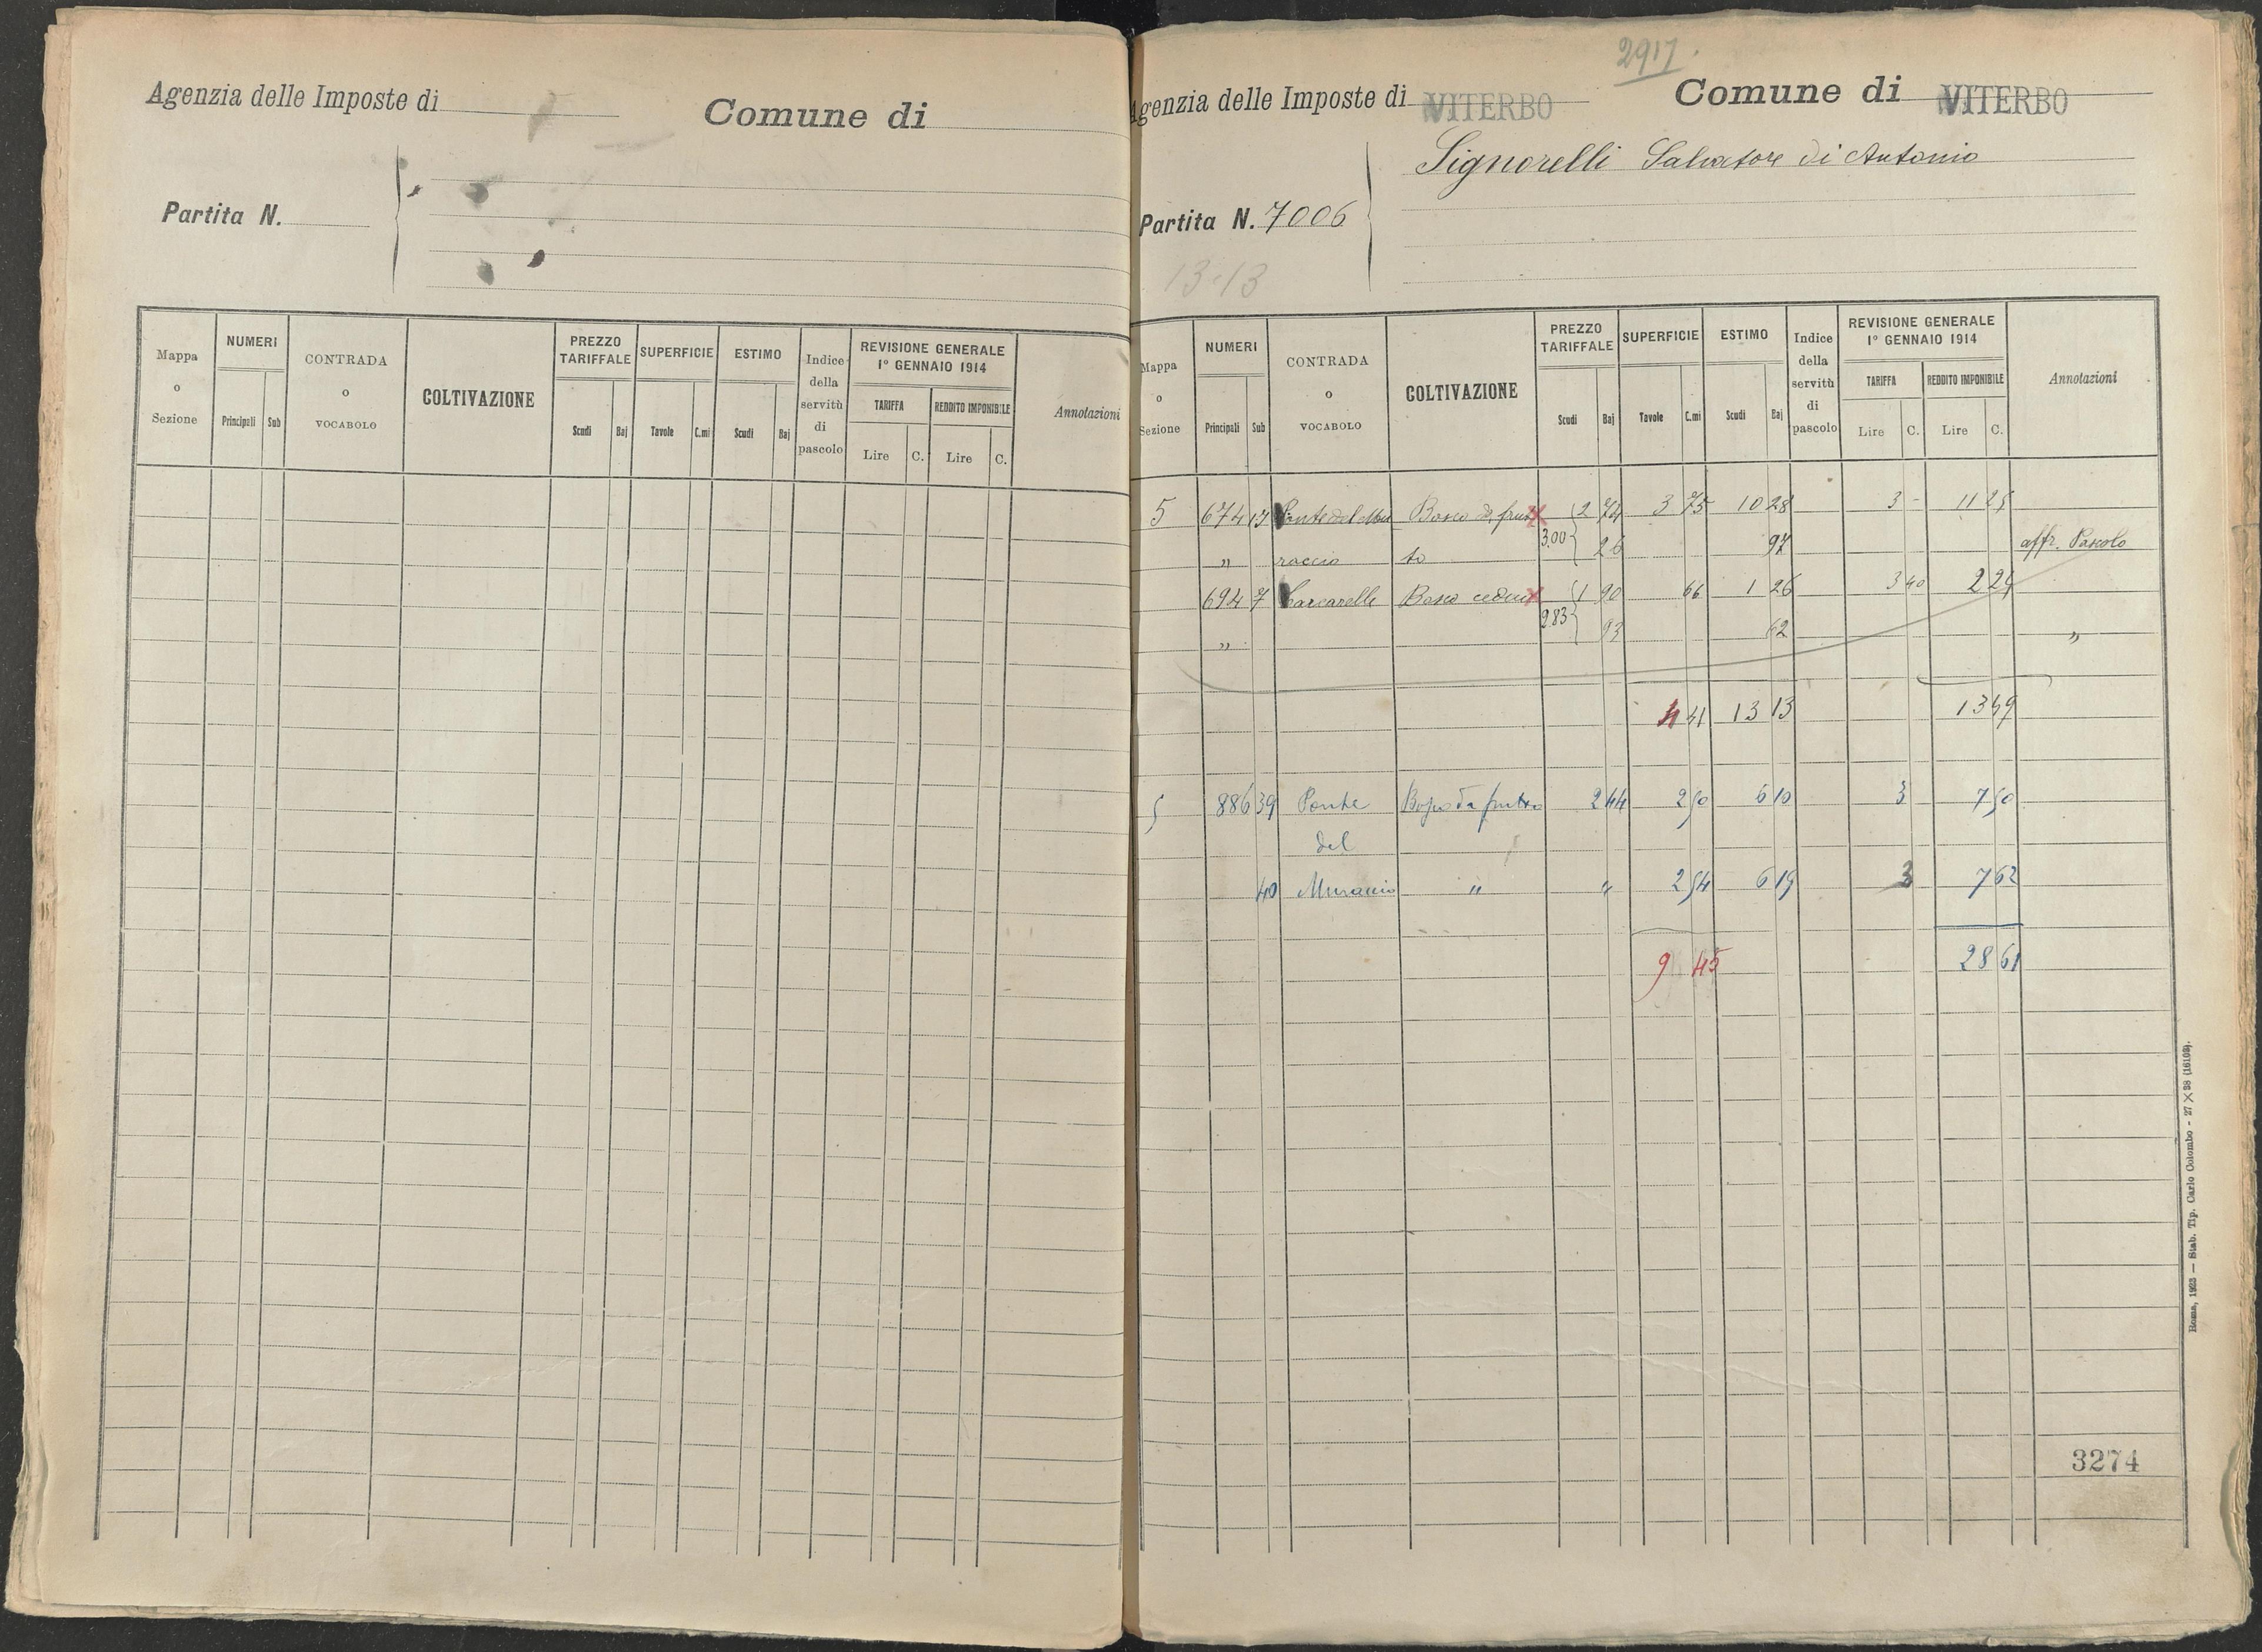 Agenzia delle Imposte di
Comune di
Partita N.
Mappa o Sezione
NUMERI
Principali
Sub
CONTRADA o VOCABOLO
COLTIVAZIONE
PREZZO TARIFFALE
Scudi
Baj
SUPERFICIE
Tavole
C.mi
ESTIMO
Scudi
Baj
Indice della servitù di pascolo
REVISIONE GENERALE
1° GENNAIO 1914
TARIFFA
REDDITO IMPONIBILE
Lire
C.
Lire
C.
Annotazioni
2917.
Agenzia delle Imposte di VITERBO
Comune di VITERBO
Signorelli Salvatore di Antonio
Partita N. 7006
13.13
Mappa o Sezione
NUMERI
Principali
Sub
CONTRADA o VOCABOLO
COLTIVAZIONE
PREZZO TARIFFALE
Scudi
Baj
SUPERFICIE
Tavole
C.mi
ESTIMO
Scudi
Baj
Indice della servitù di pascolo
REVISIONE GENERALE
1° GENNAIO 1914
TARIFFA
REDDITO IMPONIBILE
Lire
C.
Lire
C.
Annotazioni
5 674 Ponte del Mu Bosco da frut 2 74 3 75 10 28 3 - 11 25
" raccio to 3.00 26 97 affr. Pascolo
694 7 Carcarelle Bosco ceduo 1 90 66 1 26 3 40 2 24
" 2.83 93 62 "
4 41 13 13 13 49
5 886 39 Ponte Bosco da frutto 2 44 2 50 6 10 3 7 50
del
40 Muraccio " " 2 54 6 19 3 7 62
9 45 28 61
3274
Roma, 1923 — Stab. Tip. Carlo Colombo - 27 X 38 (16109).